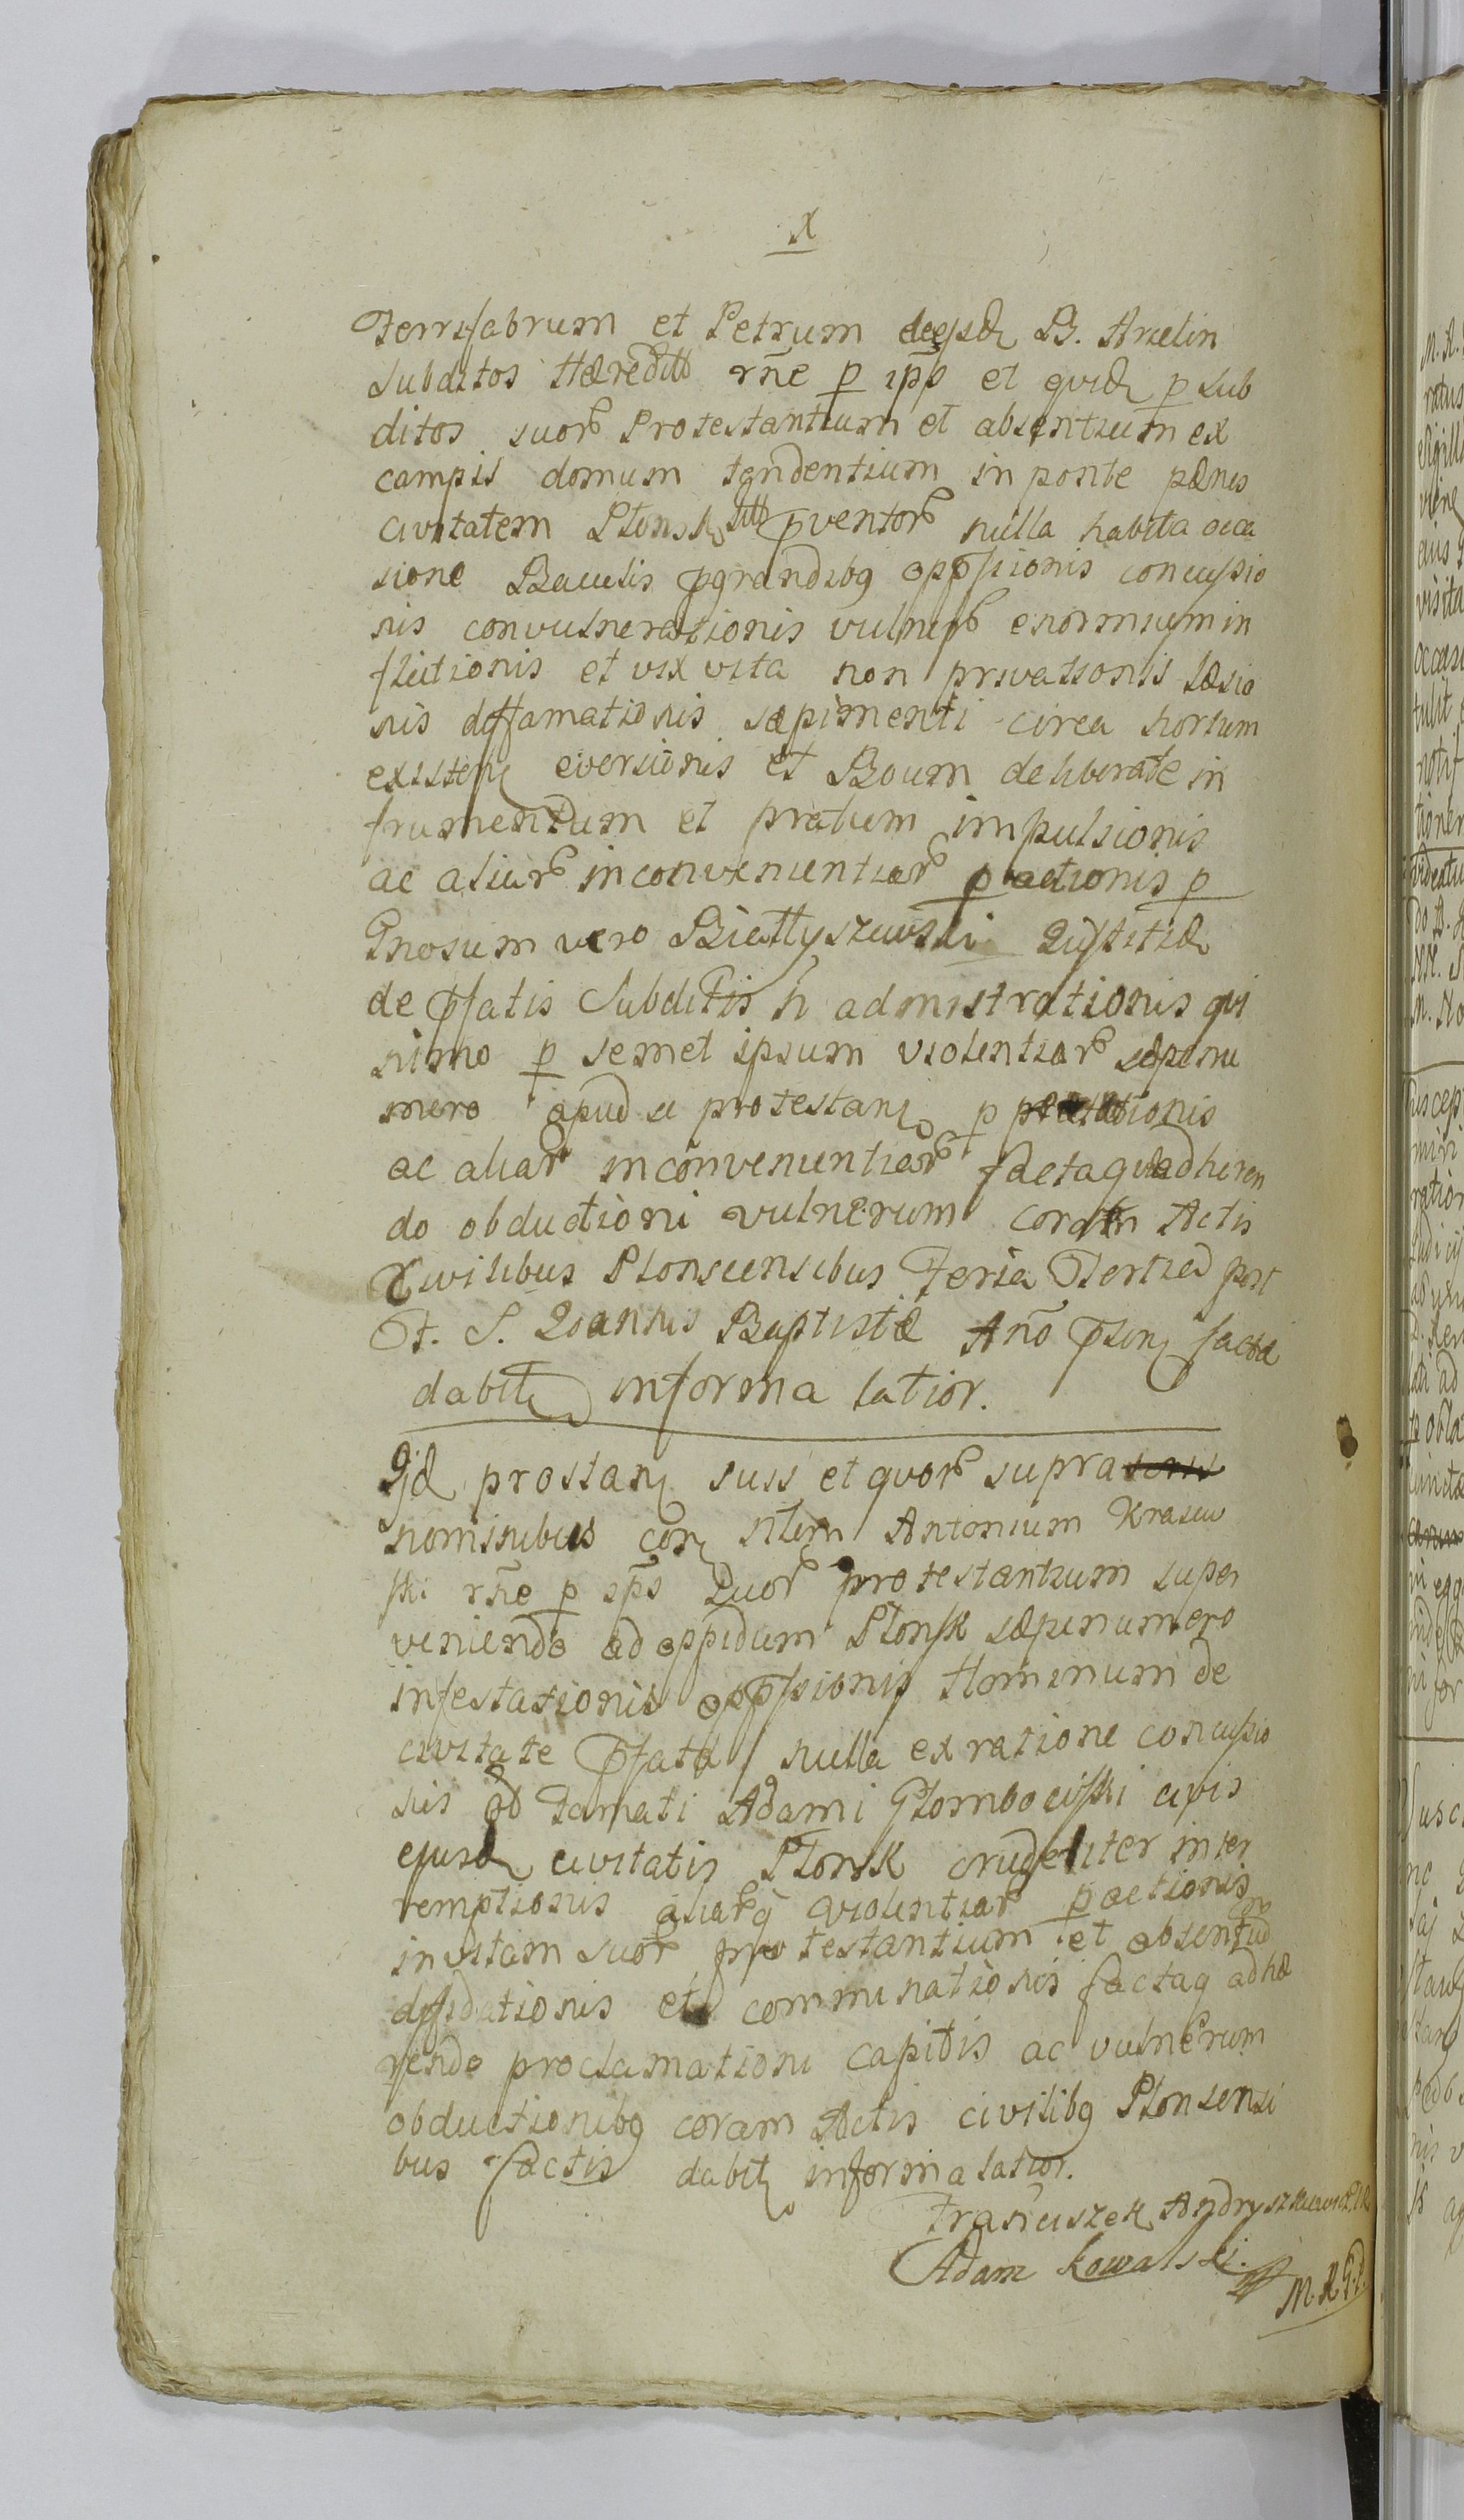 X
Ferrifabrum et Petrum de ejusd B. Arcelin
Subditos Hæreditt rñe p ipp̃s et quid p sub
ditos suor Protestantium et absentium ex
campis domum tendentium in ponte pænes
civitatem Plonsk sitt p̃ventor nulla habita occa
sione Baculis p̃grandibq opp̃ssionis concussio
nis convulnerationis vulner enormium in
flictionis et vix vita non privationis læsio
nis diffamationis sæpimenti circa hortum
existen eversionis et Boum deliberate in
frumentum et pratum impulsionis
ac aliar inconvenientiar patrationis p
Gnosum vero Biettyszewski Justitiæ
de p̃fatis Subditis ñ admistrationis qvi
nimo p semet ipsum violentiar sæpenu
mero apud se protestan p patrationis
ac aliar inconvenientiar factaq adheren
do obductioni vulnerum coram Actis
Civilibus Plonscensibus Feria Tertia post
F. S. Joannis Baptistæ Año p̃sen factæ
dabit informa latior.
Iid prostan suis et quor supra
nominibus con Nlem Antonium Krasew
ski rñe p ip̃s Quor protestantium super
veniendo ad oppidum Plonsk sæpenumero
infestationis opp̃ssionis Hominum de
civitate p̃fata nulla ex ratione concussio
nis Famati Adami Głombociski civis
ejusd civitatis Plonsk crudeliter inter
remptionis aliarq violentiar pactionis
in vitam suor protestantium et absentium
diffidationis et comminationis factaq adhæ
rendo proclamationi capitis ac vulnerum
obductionibq coram Actis civilibq Plonsensi
bus factis dabit informa latior.
Franciszek Andryszkiewicz
Adam Kowalski
M. K. G. P.